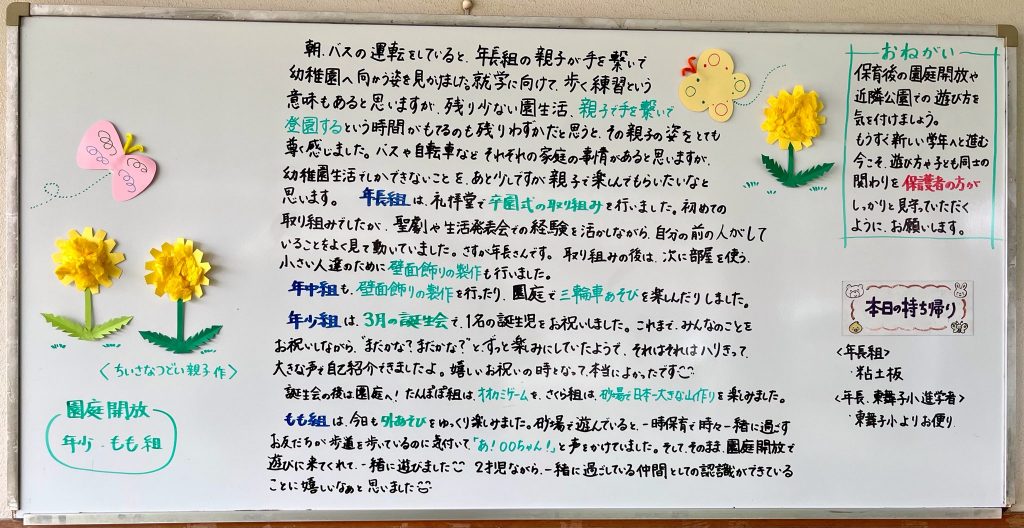 朝、バスの運転をしていると、年長組の親子が手を繋いで
幼稚園へ向かう姿を見かけました。就学に向けて、歩く練習という
意味もあると思いますが、残り少ない園生活、親子で手を繋いで
登園するという時間がもてるのも残りわずかだと思うと、その親子の姿をとても
尊く感じました。バスや自転車など それぞれの家庭の事情があると思いますが、
幼稚園生活でしかできないことを、あと少しですが親子で楽しんでもらいたいなと
思います。 年長組は、礼拝堂で卒園式の取り組みを行いました。初めての
取り組みでしたが、聖劇や生活発表会での経験を活かしながら、自分の前の人がして
いることをよく見て動いていました。さすが年長さんです。 取り組みの後は、次に部屋を使う、
小さい人達のために壁面飾りの製作も行いました。
年中組も、壁面飾りの製作を行ったり、園庭で三輪車あそびを楽しんだりしました。
年少組は、3月の誕生会で、1名の誕生児をお祝いしました。これまで、みんなのことを
お祝いしながら、"まだかな?まだかな?"と、ずっと楽しみにしていたようで、それはそれはハリきって、
大きな声で自己紹介できましたよ。嬉しいお祝いの時となって、本当によかったです
誕生会の後は園庭へ!たんぽぽ組は、オオカミゲームを、さくら組は、砂場で日本一大きな山作りを楽しみました。
もも組は、今日も外あそびをゆっくり楽しみました。砂場で遊んでいると、一時保育で時々一緒に過ごす
お友だちが歩道を歩いているのに気付いて、「あ!〇〇ちゃん!」と声をかけていました。そして、そのまま、園庭開放で
遊びに来てくれて、一緒に遊びました 2才児ながら、一緒に過ごしている仲間としての認識ができている
ことに嬉しいなぁと思いました
<ちいさなつどい親子作>
園庭開放
年少・もも組
おねがい
保育後の園庭開放や
近隣公園での遊び方を
気を付けましょう。
もうすぐ新しい学年へと進む
今こそ、遊び方や子ども同士の
関わりを保護者の方が
しっかりと見守っていただく
ように、お願いします。
本日の持ち帰り
<年長組>
・粘土板
<年長、東舞子小進学者>
・東舞子小よりお便り